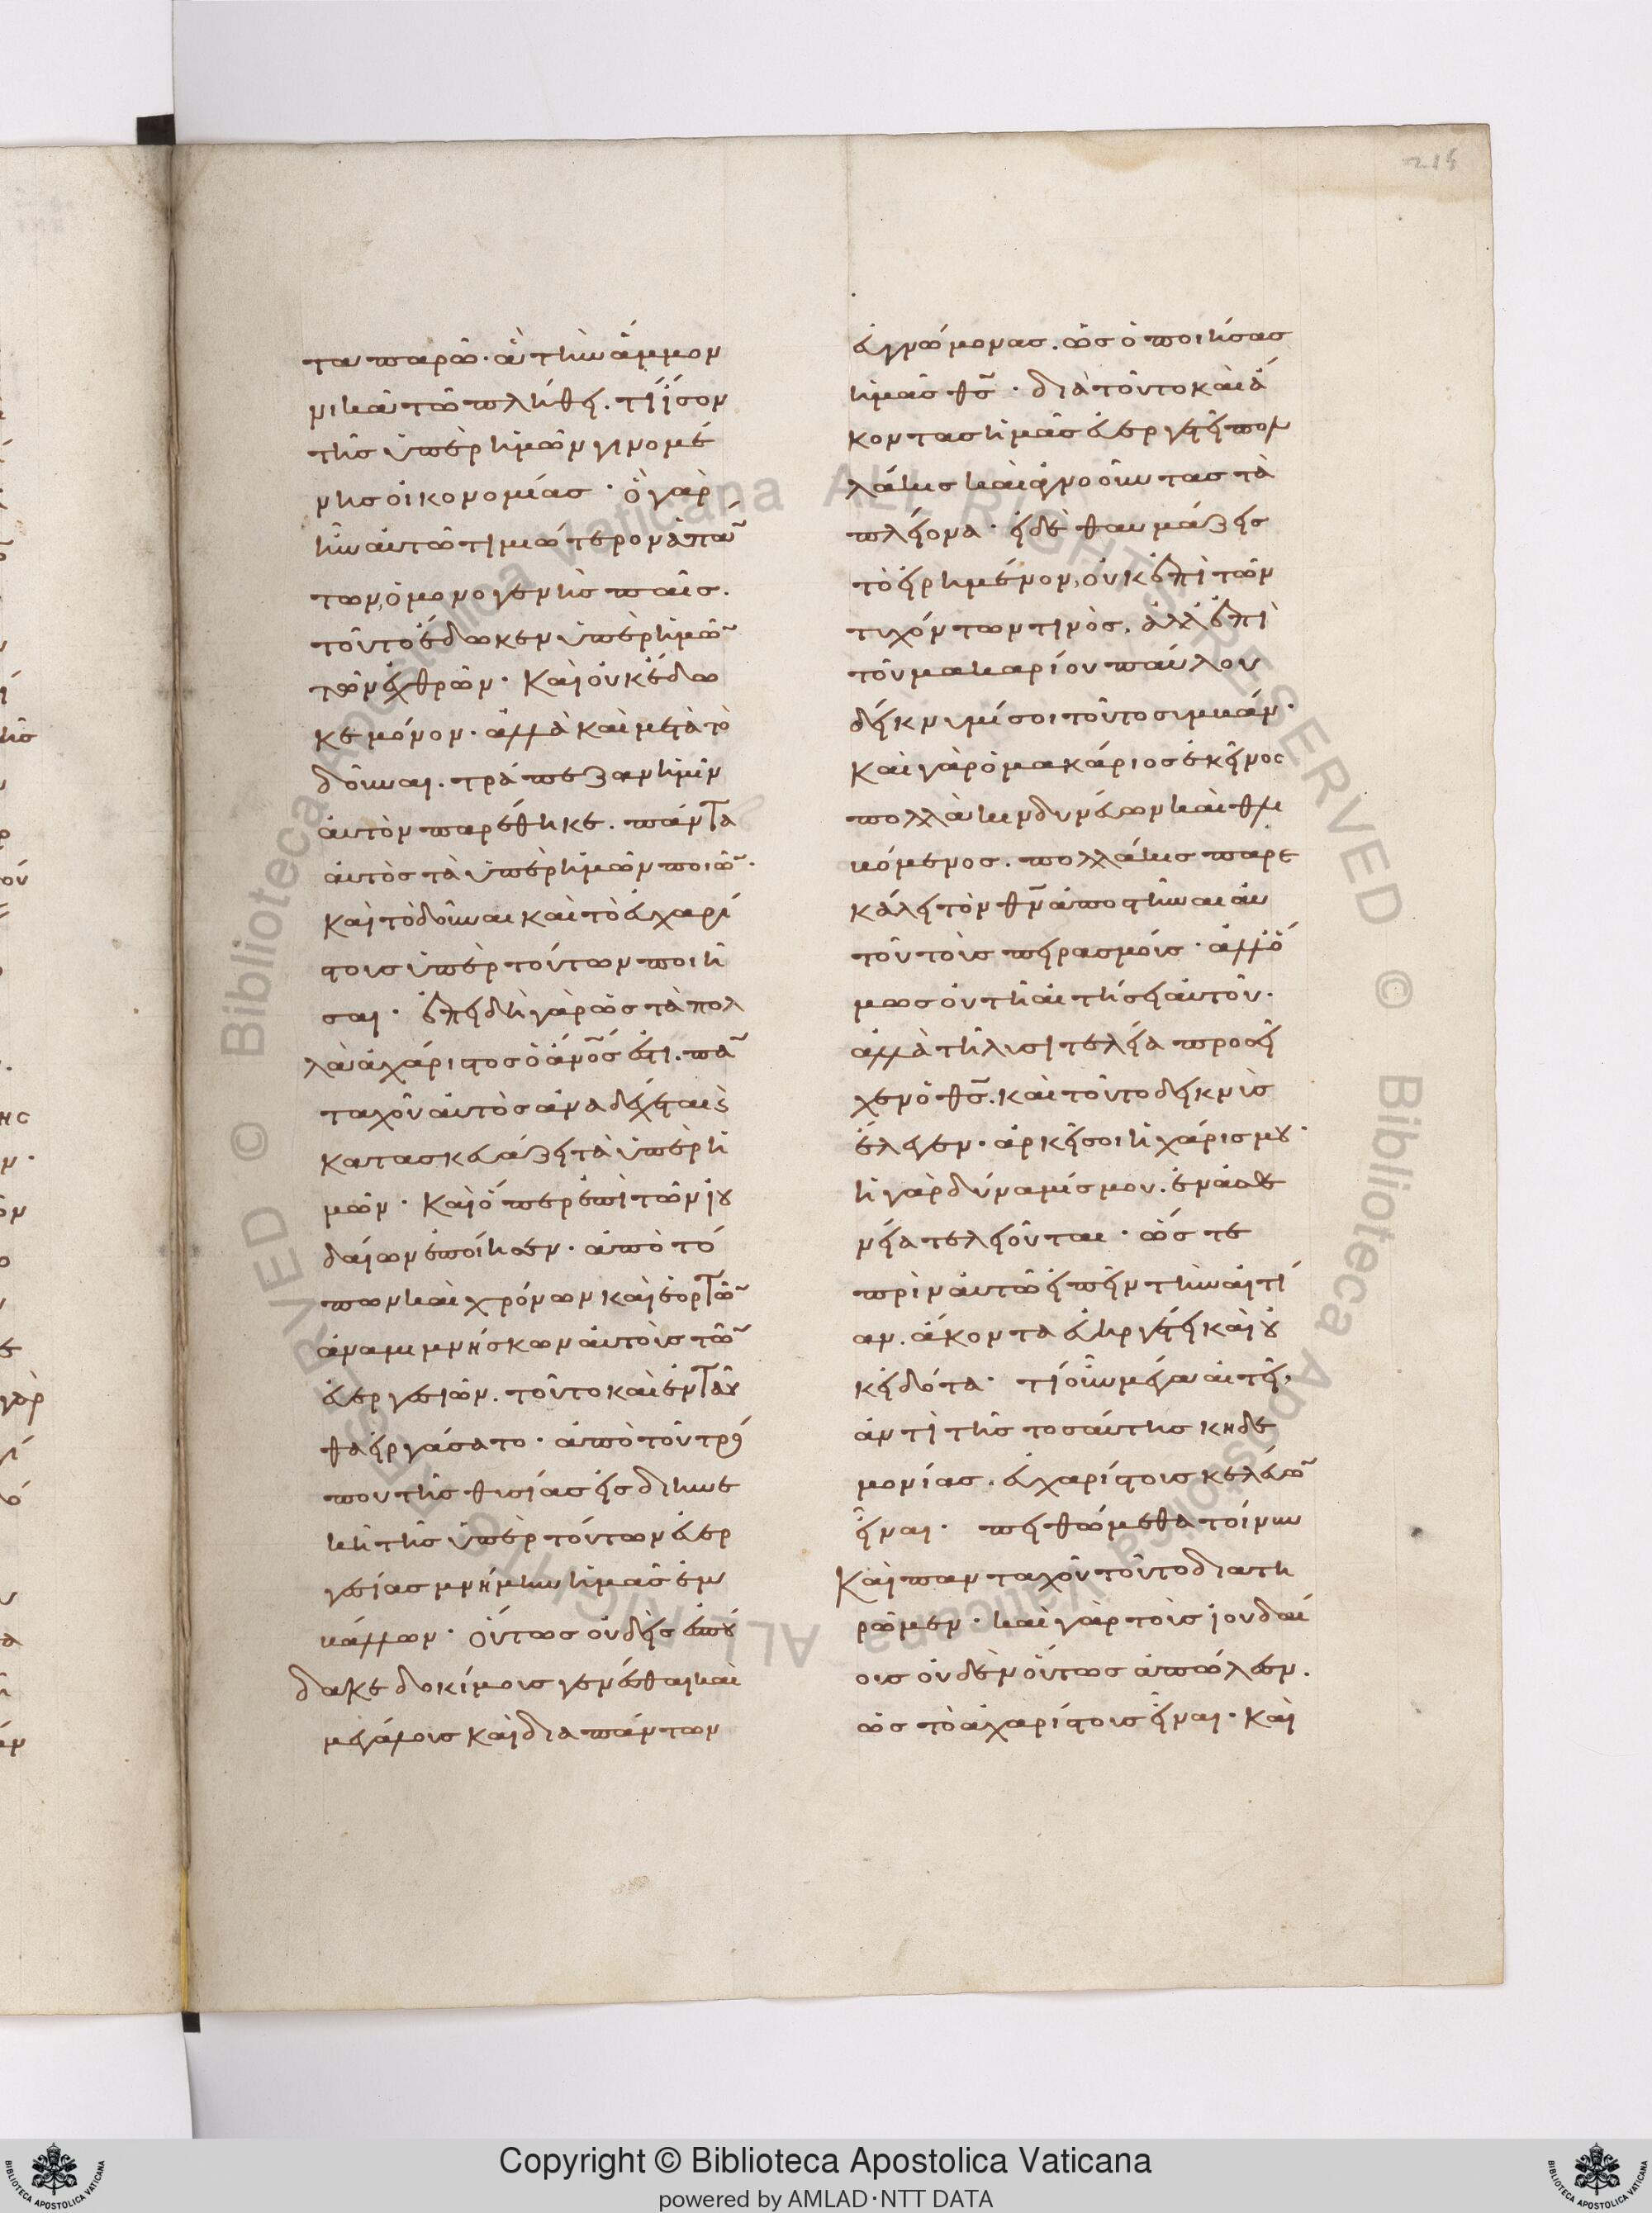 215
ταυπαρῶ· ἂν τὴν ἄμμον
νικᾶν τῶ πλήθει. τί ἴσον
τῆς ὑπὲρ ἡμῶν γινομέ
νης οἰκονομίας· ὃ γὰρ
ἦν αὐτῶ τιμιώτερον ἁπάν
των, ὁ μονογενὴς παῖς.
τοῦτο ἔδωκεν ὑπὲρ ἡμῶν
τῶν ἐχθρῶν· Καὶ οὐκ ἔδω
κε μόνον· ἀλλὰ καὶ μετὰ τὸ
δοῦναι. τράπεζαν ἡμῖν
αὐτὸν παρέθηκε. πάντα
αὐτὸς τὰ ὑπὲρ ἡμῶν ποιῶν.
Καὶ τὸ δοῦναι καὶ τὸ εὐχαρί
στους ὑπὲρ τούτων ποιῆ
σαι· ἐπειδὴ γὰρ ὡς τὰ πολ
λὰ ἀχάριστος ὁ ἄνος ἐστι. παν
ταχοῦ αὐτὸς ἀναδέχεται καὶ
κατασκευάζει τὰ ὑπὲρ ἡ
μῶν· Καὶ ὅπερ ἐπὶ τῶν ἰου
δαίων ἐποίησεν· ἀπὸ τό
πων καὶ χρόνων καὶ ἑορτῶν
ἀναμιμνήσκων αὐτοὺς τῶν
εὐεργεσιῶν. τοῦτο καὶ ἐνταῦ
θα εἰργάσατο· ἀπὸ τοῦ τρό
που τῆς θυσίας εἰς διηνε
κῆ τῆς ὑπὲρ τούτων εὐερ
γεσίας μνήμην ἡμᾶς ἐμ
βάλλων· Οὕτως οὐδεὶς ἐσπού
δακε δοκίμους γενέσθαι καὶ
μεγάλους καὶ διὰ πάντων
εὐγνώμονας. ὡς ὁ ποιήσας
ἡμᾶς θς· διὰ τοῦτο καὶ ἄ
κοντας ἡμᾶς εὐεργετεῖ πολ
λάκις καὶ ἀγνοοῦντας τὰ
πλείονα· εἰ δὲ θαυμάζεις
τὸ εἰρημένον, οὐκ ἐπὶ τῶν
τυχόντων τινὸς, ἀλλ' ἐπὶ
τοῦ μακαρίου παύλου
δείκνυμί σοι τοῦτο συμβάν·
Καὶ γὰρ ὁ μακάριος ἐκεῖνος
πολλὰ κινδυνεύων καὶ θλι
βόμενος. πολλάκις παρε
κάλει τὸν θν ἀποστῆναι αὐ
τοῦ τοὺς πειρασμούς· ἀλλ' ὅ
μως οὐ τῆ αἰτήσει αὐτοῦ·
ἀλλὰ τῆ λυσιτελεία προσεῖ
χεν ὁ θς. καὶ τοῦτο δεικνὺς
ἔλεγεν· ἀρκεῖ σοι ἡ χάρις μου·
ἡ γὰρ δύναμίς μου. ἐν ἀσθε
νεία τελειοῦται· ὥστε
πρὶν αὐτῶ εἰπεῖν τὴν αἰτί
αν. ἄκοντα εὐηργέτει καὶ οὐ
κ εἰδότα· τί οὖν μέγα αἰτεῖ,
ἀντὶ τῆς τοσαύτης κηδε
μονίας. εὐχαρίστους κελεύων
εἶναι· πειθώμεθα τοίνυν
Καὶ πανταχοῦ τοῦτο διατη
ρῶμεν· καὶ γὰρ τοὺς ἰουδαί
ους οὐδὲν οὕτως ἀπώλεσεν.
ὡς τὸ ἀχαρίστους εἶναι· καὶ
Copyright © Biblioteca Apostolica Vaticana
powered by AMLAD·NTT DATA